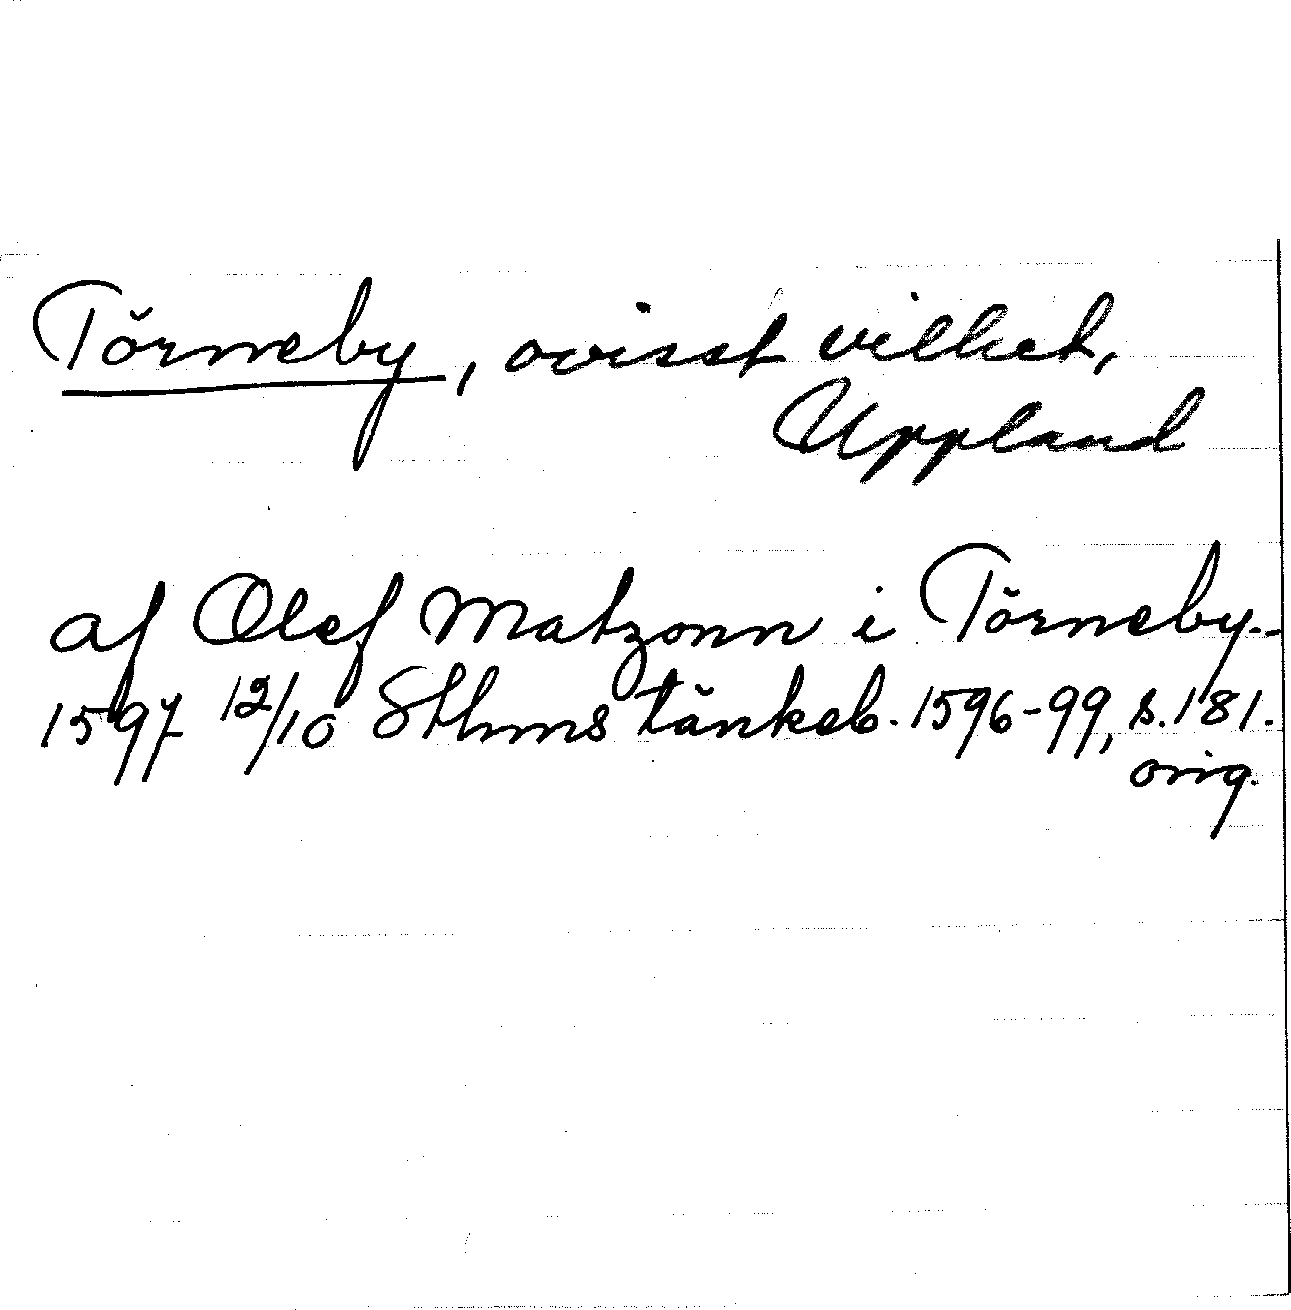 Törneby, ovisst vilket,
Uppland
af Olef Matzonn i Törneby.-
1597 12/10 Sthms tänkeb. 1596-99, s. 181.
orig.